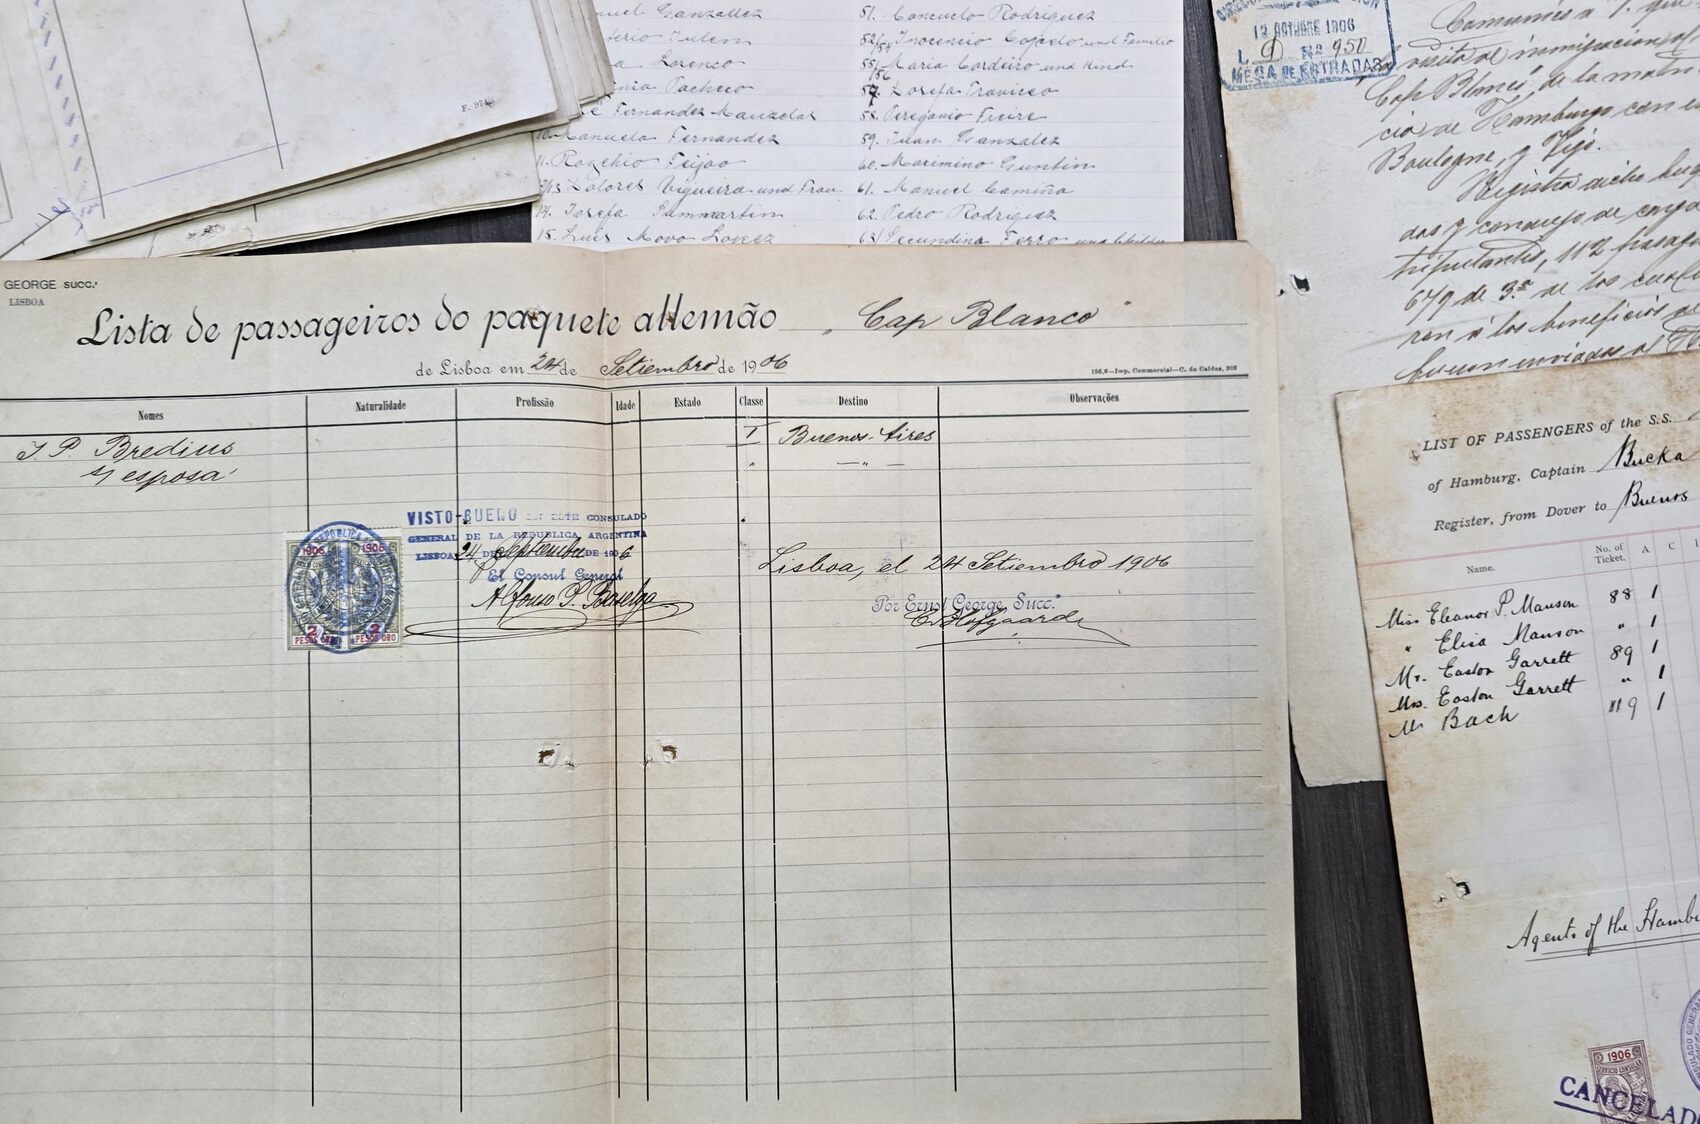 F. 971
Ganzallez
Lorenco
Pacheco
Fernandez Manzelas
10. Manuela Fernandez
11. Rogehio Feijao
12/13 Dolores Vigueira und Frau
14. Josefa Sammartin
15. Luis Novo Lopez
51. Concuelo Rodriguez
52/54 Inocencio Cajedo und Familie
55/56 Maria Cordeiro und Kind
57. Josefa Travieso
58. Pereganio Freire
59. Juan Ganzalez
60. Marimino Guntin
61. Manuel Camiña
62. Pedro Rodriguez
63/ Secundina Ferro und
12 OCTUBRE 1906
L. 9 No 950
MESA DE ENTRADAS
Comunico a V. que
visita de inmigracion al
Cap Blanco, de la matri
de Hamburgo con
Boulogne, y Vigo.
Registra dicho buq
das y conduejo de carga
tripulantes, 112 pasag
679 de 3ª de los cuales
ren á los beneficios
fueron enviados al
GEORGE SUCC.s
LISBOA
Lista de passageiros do paquete allemão "Cap Blanco"
de Lisboa em 24 de Setiembro de 1906
156,6—Imp. Commercial—C. do Caldas, 202
Nomes Naturalidade Profissão Idade Estado Classe Destino Observações
J. P. Bredius I Buenos-Aires
s/ esposa " — " —
VISTO-BUENO EN ESTE CONSULADO
GENERAL DE LA REPUBLICA ARGENTINA
LISBOA 24 DE Septembre DE 1906
El Consul General
Alfonso P. Baselga
1906 1906
2 2
PESOS ORO PESOS ORO
Lisboa, el 24 Setiembro 1906
Por Ernst George Succ.s
C. Hofgaard
LIST OF PASSENGERS of the S.S.
of Hamburg, Captain Bucka
Register, from Dover to Buenos
Name. No. of Ticket. A C I
Miss Eleanor P. Manson 88 1
" Elisa Manson " 1
Mr. Easton Garrett 89 1
Mrs. Easton Garrett " 1
Mr Bach 119 1
Agents of the Hambu
1906
SERVICIO CONSULAR
CANCELADO